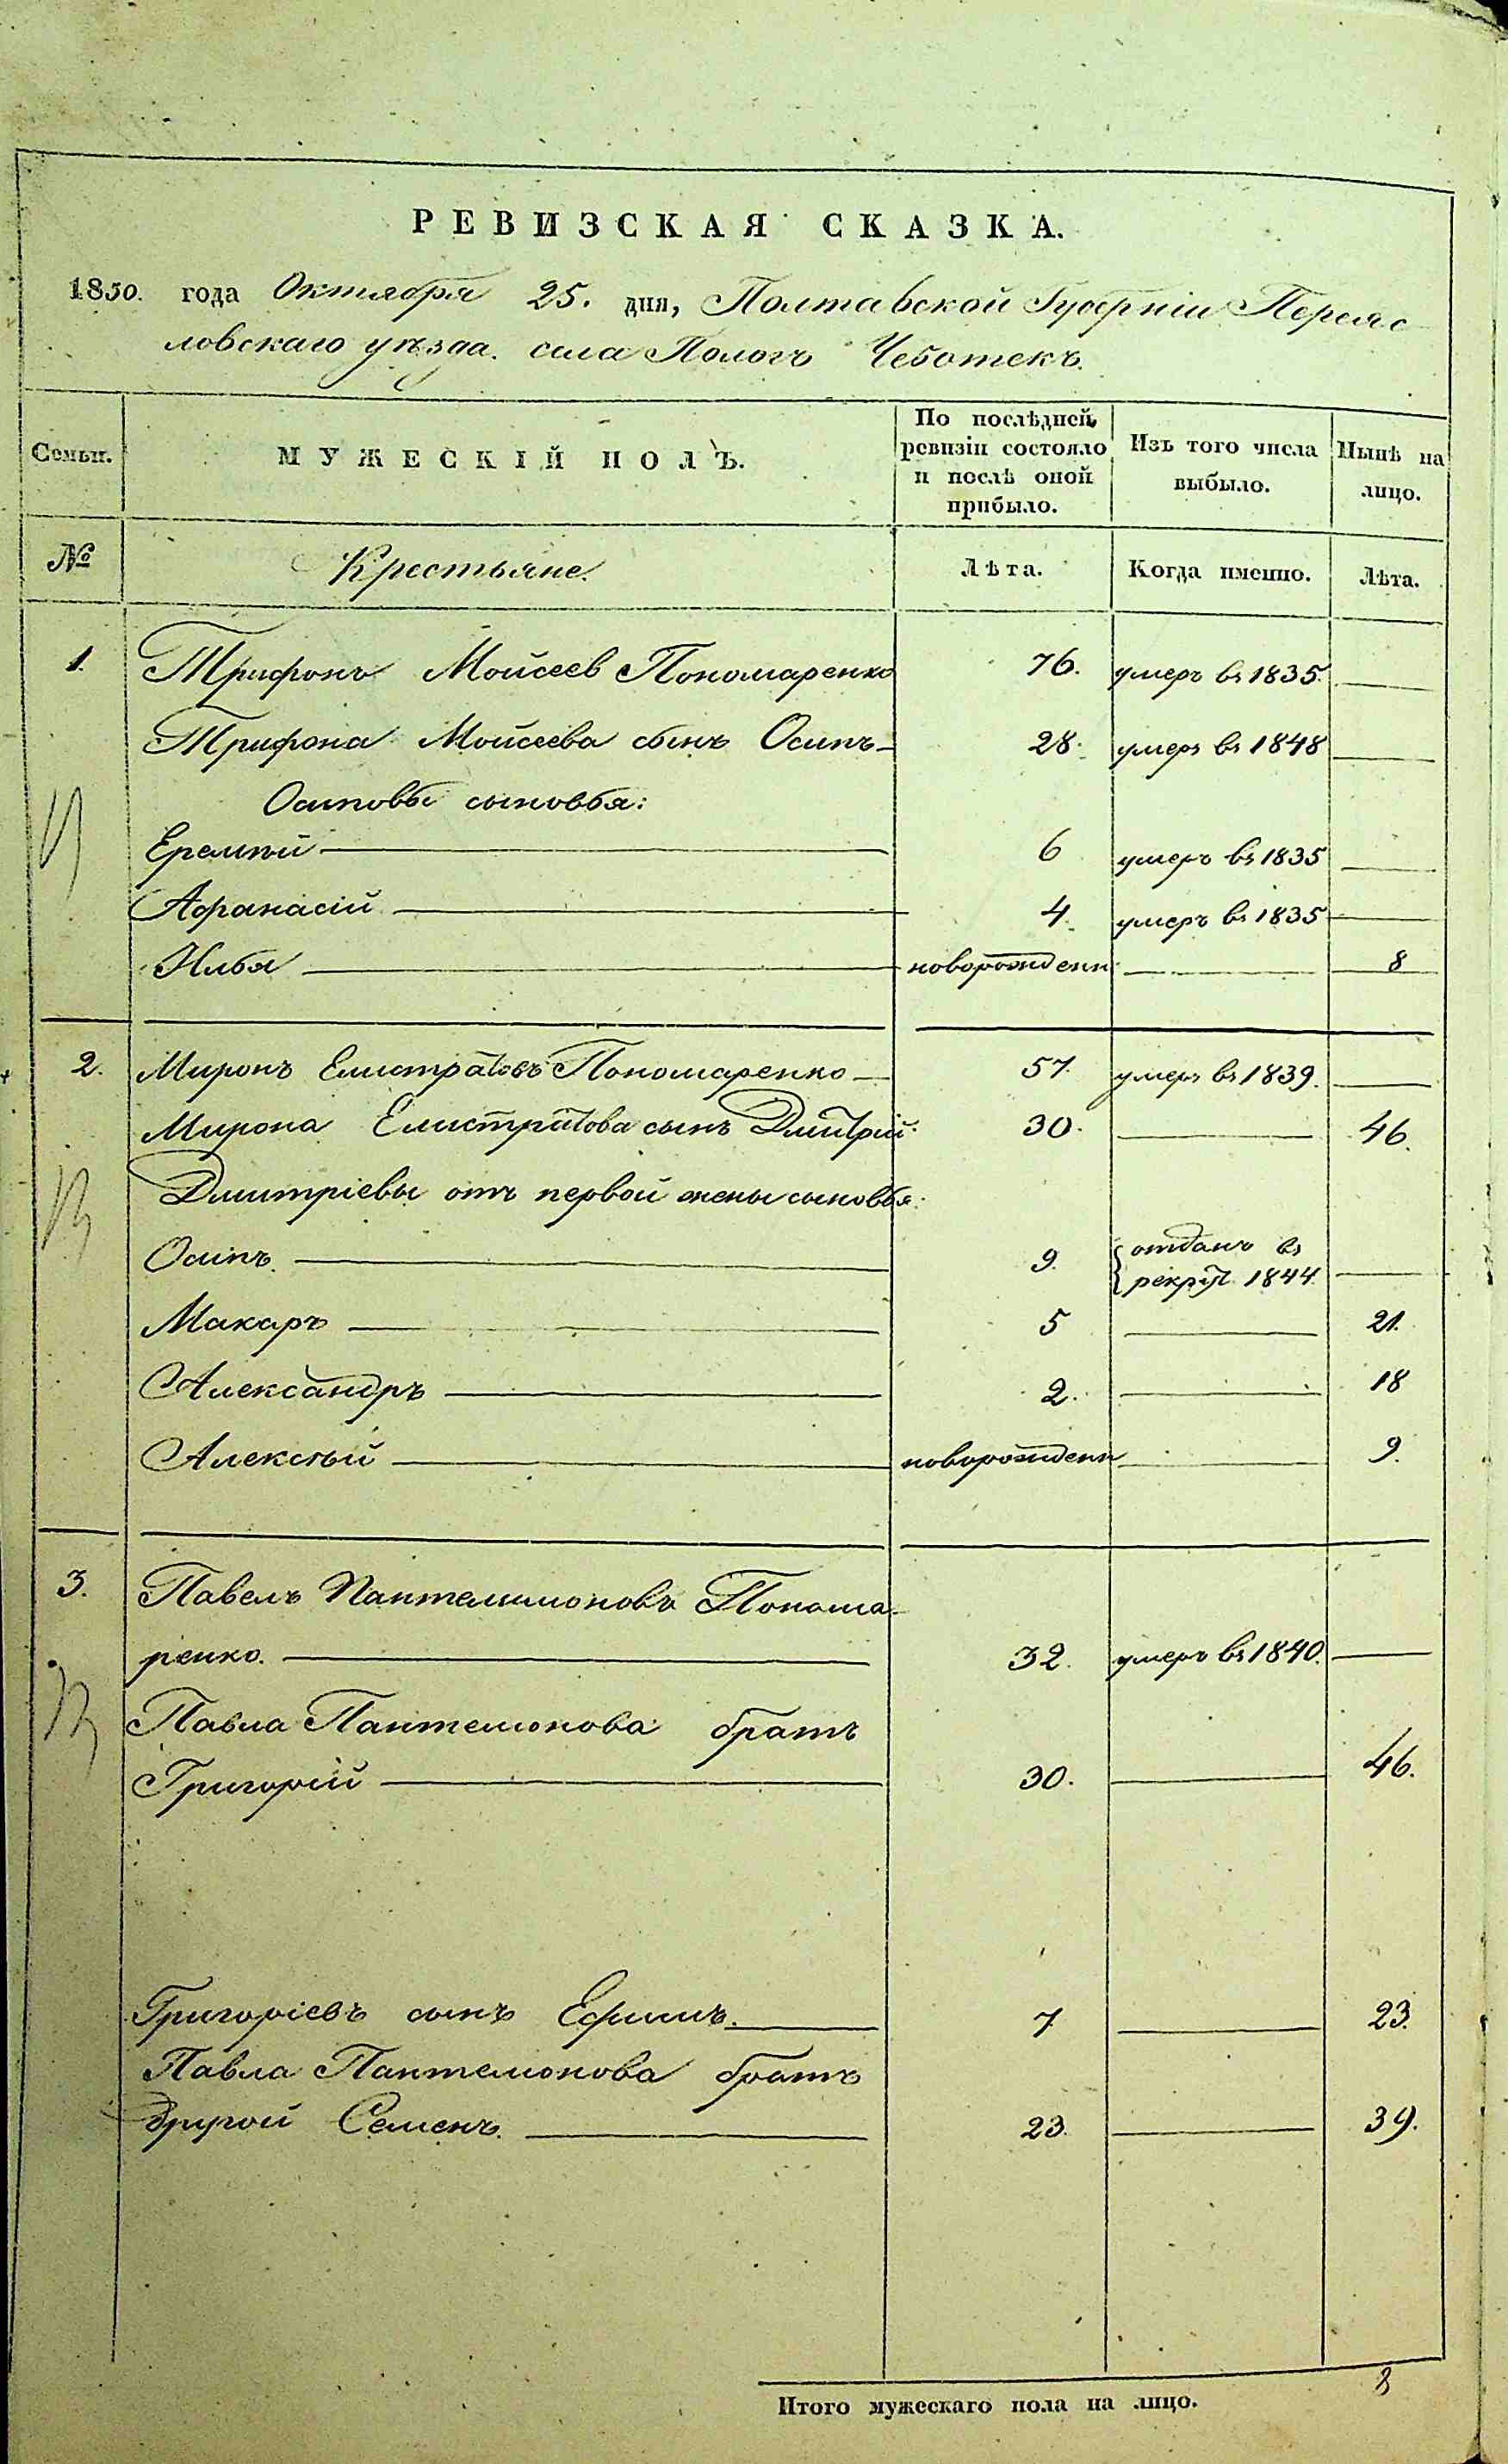 РЕВИЗСКАЯ СКАЗКА.
1850. года Октября 25. дня, Полтавской Губерніи Переяс
ловскаго уѣзда. села Пологъ Чеботекъ.
Семьи. МУЖЕСКІЙ ПОЛЪ. По послѣдней ревизіи состояло и послѣ оной прибыло. Изъ того числа выбыло. Нынѣ на лицо.
№ Крестьяне. Лѣта. Когда именно. Лѣта.
1. Трифонъ Мойсеев Пономаренко 76. умеръ въ 1835.
Трифона Мойсеева сынъ Осипъ 28. умеръ въ 1848
Осиповы сыновья:
Еремѣй 6 умеръ въ 1835
Афанасій 4. умеръ въ 1835
Илья новорожден 8
2. Миронъ Елистратовъ Пономаренко 57. умеръ въ 1839.
Мирона Елистратова сынъ Дмитрій 30. 46.
Дмитріевы отъ первой жены сыновья:
Осипъ. 9. отданъ въ
рекрут. 1844.
Макаръ 5 21.
Александръ 2. 18
Алексѣй новорожден 9.
3. Павелъ Пантелимоновъ Понома-
ренко. 32. умеръ въ 1840.
Павла Пантелимонова братъ
Григорій 30. 46.
Григоріевъ сынъ Ефимъ. 7 23.
Павла Пантелимонова братъ
другой Семенъ. 23. 39.
Итого мужескаго пола на лицо. 8